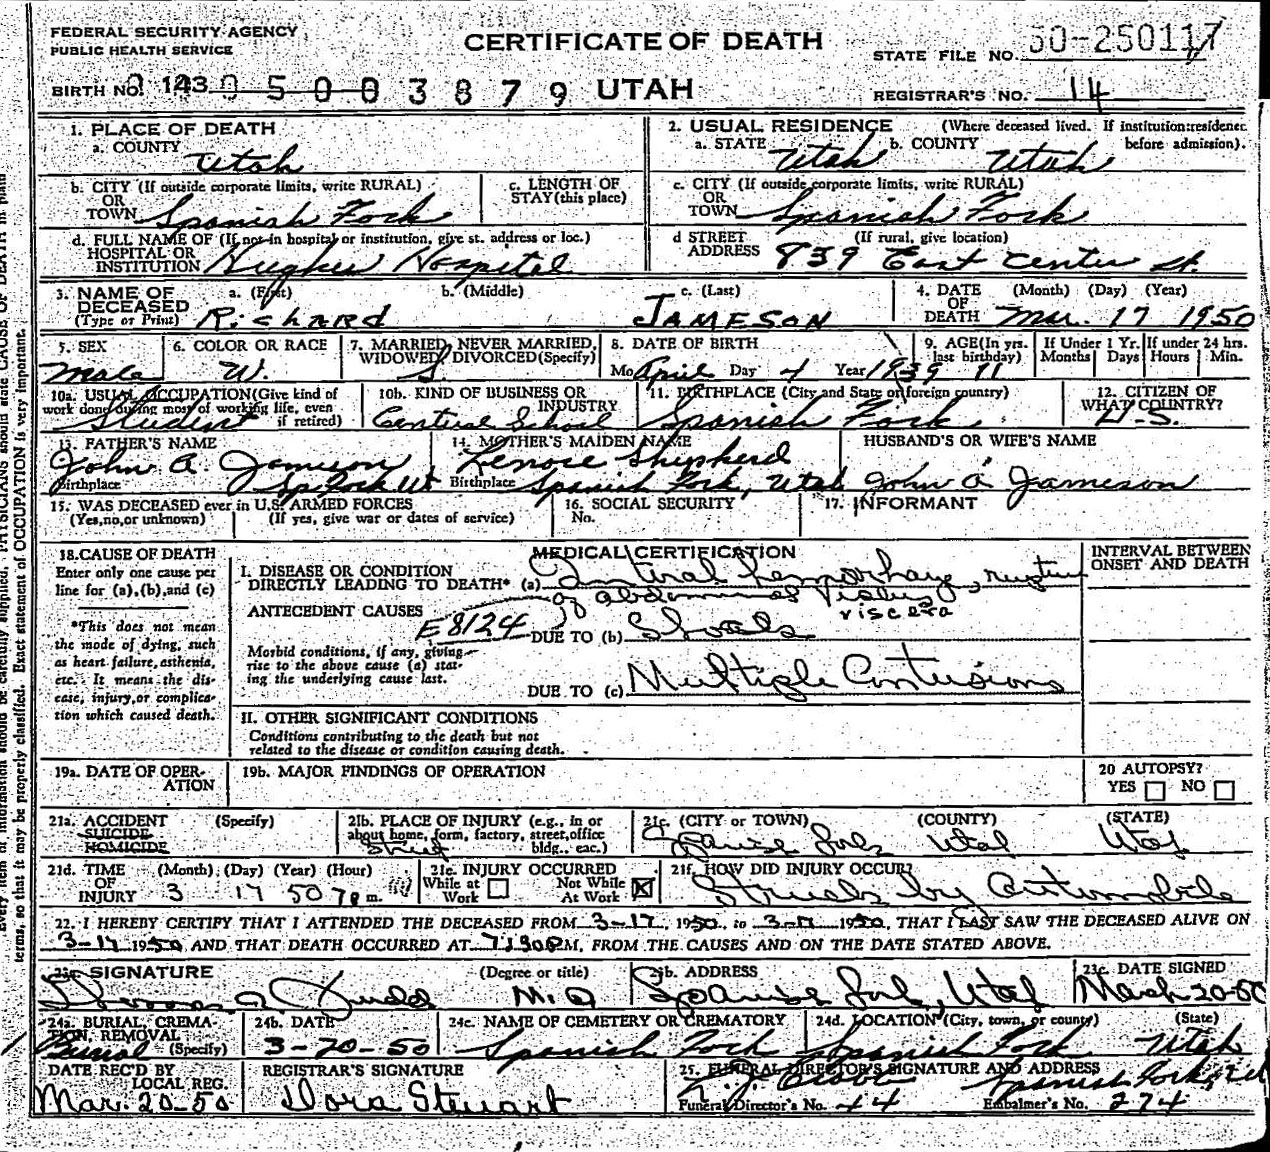 FEDERAL SECURITY AGENCY
PUBLIC HEALTH SERVICE
CERTIFICATE OF DEATH
STATE FILE NO. 50-250117
BIRTH NO. 143 0500 3879 UTAH
REGISTRAR'S NO. 14
1. PLACE OF DEATH
a. COUNTY Utah
2. USUAL RESIDENCE (Where deceased lived. If institution:residence before admission).
a. STATE Utah b. COUNTY Utah
b. CITY (If outside corporate limits, write RURAL)
OR
TOWN Spanish Fork
c. LENGTH OF
STAY (this place)
c. CITY (If outside corporate limits, write RURAL)
OR
TOWN Spanish Fork
d. FULL NAME OF (If not in hospital or institution, give st. address or loc.)
HOSPITAL OR
INSTITUTION Hughes Hospital
d STREET (If rural, give location)
ADDRESS 839 East Center St.
3. NAME OF DECEASED (Type or Print)
a. (First) b. (Middle) c. (Last)
Richard JAMESON
4. DATE OF DEATH (Month) (Day) (Year)
Mar. 17 1950
5. SEX
Male
6. COLOR OR RACE
W.
7. MARRIED, NEVER MARRIED,
WIDOWED, DIVORCED (Specify)
S
8. DATE OF BIRTH
Mo. April Day 4 Year 1939
9. AGE (In yrs. last birthday)
11
If Under 1 Yr. Months Days
If under 24 hrs. Hours Min.
10a. USUAL OCCUPATION (Give kind of
work done during most of working life, even
if retired)
Student
10b. KIND OF BUSINESS OR
INDUSTRY
Central School
11. BIRTHPLACE (City and State or foreign country)
Spanish Fork
12. CITIZEN OF
WHAT COUNTRY?
U.S.
13. FATHER'S NAME
John A. Jameson
Birthplace Sp. Fork Ut
14. MOTHER'S MAIDEN NAME
Lenore Shepherd
Birthplace Spanish Fork, Utah
HUSBAND'S OR WIFE'S NAME
John A. Jameson
15. WAS DECEASED ever in U.S. ARMED FORCES
(Yes, no, or unknown) (If yes, give war or dates of service)
16. SOCIAL SECURITY
No.
17. INFORMANT
18. CAUSE OF DEATH
Enter only one cause per
line for (a), (b), and (c)
*This does not mean
the mode of dying, such
as heart failure, asthenia,
etc. It means the dis-
ease, injury, or complica-
tion which caused death.
MEDICAL CERTIFICATION
INTERVAL BETWEEN
ONSET AND DEATH
I. DISEASE OR CONDITION
DIRECTLY LEADING TO DEATH* (a) hemorrhage, rupture
of abdominal
viscera
ANTECEDENT CAUSES
E8124
DUE TO (b)
Morbid conditions, if any, giving
rise to the above cause (a) stat-
ing the underlying cause last.
DUE TO (c) Multiple Contusions
II. OTHER SIGNIFICANT CONDITIONS
Conditions contributing to the death but not
related to the disease or condition causing death.
19a. DATE OF OPER-
ATION
19b. MAJOR FINDINGS OF OPERATION
20 AUTOPSY?
YES NO
21a. ACCIDENT (Specify)
SUICIDE
HOMICIDE
21b. PLACE OF INJURY (e.g., in or
about home, form, factory, street, office
bldg., eac.)
Street
21c. (CITY or TOWN) (COUNTY) (STATE)
Spanish Fork Utah Utah
21d. TIME OF INJURY (Month) (Day) (Year) (Hour)
3 17 50 7 p m.
21e. INJURY OCCURRED
While at Work
Not While At Work
21f. HOW DID INJURY OCCUR?
Struck by Automobile
22. I HEREBY CERTIFY THAT I ATTENDED THE DECEASED FROM 3-17, 1950, to 3-17 1950, THAT I LAST SAW THE DECEASED ALIVE ON
3-17 1950 AND THAT DEATH OCCURRED AT 7:30 P.M., FROM THE CAUSES AND ON THE DATE STATED ABOVE.
23a. SIGNATURE (Degree or title)
Judd M.D
23b. ADDRESS
Spanish Fork, Utah
23c. DATE SIGNED
March 20-50
24a. BURIAL, CREMA-
TION, REMOVAL
(Specify)
Burial
24b. DATE
3-20-50
24c. NAME OF CEMETERY OR CREMATORY
Spanish Fork
24d. LOCATION (City, town, or county) (State)
Spanish Fork Utah
DATE REC'D BY
LOCAL REG.
Mar. 20-50
REGISTRAR'S SIGNATURE
Dora Stewart
25. FUNERAL DIRECTOR'S SIGNATURE AND ADDRESS
Spanish Fork, Ut
Funeral Director's No. 44 Embalmer's No. 274